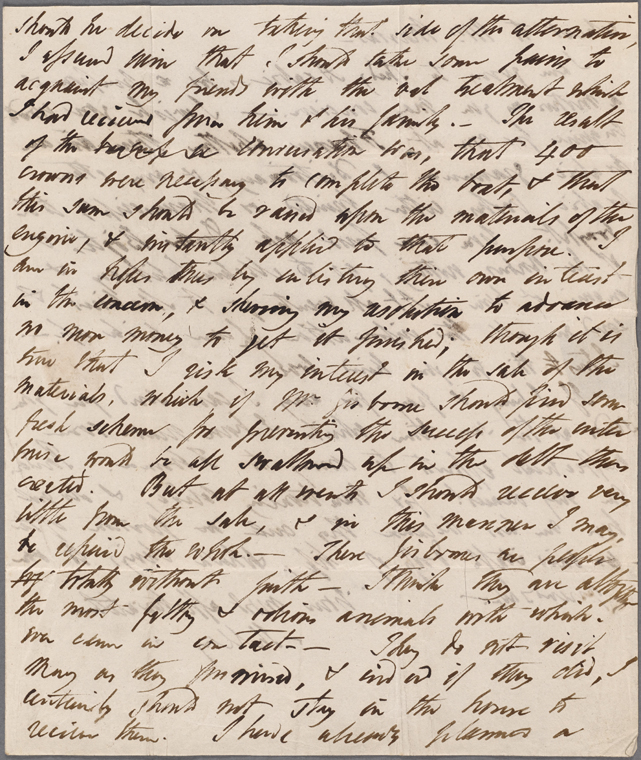 should he decide on taking that side of the alternative,
I assured him that I should take some pains to
acquaint my friends with the real treatment which
I had received from him & his family. — The result
of the conversation was, that 400
crowns were necessary to complete the boat, & that
this sum should be raised upon the materials of the
engine, & instantly applied to that purpose. I
am in hopes thus by enlisting their own interest
in the concern, & shewing my resolution to advance
no more money to get it finished; though it is
true that I risk my interest in the sale of the
materials. which if Mr Gisborne should find some
fresh scheme for preventing the success of the enter
prise would be all swallowed up in the debt thus
created. But at all events I should receive very
little from the sale, & in this manner I may
be repaid the whole. — These Gisbornes are people
totally without faith — I think they are altogether
the most filthy & odious animals with which I
ever came in contact — They do not visit
Mary as they promised, & indeed if they did, I
certainly should not stay in the house to
receive them. I have already planned a